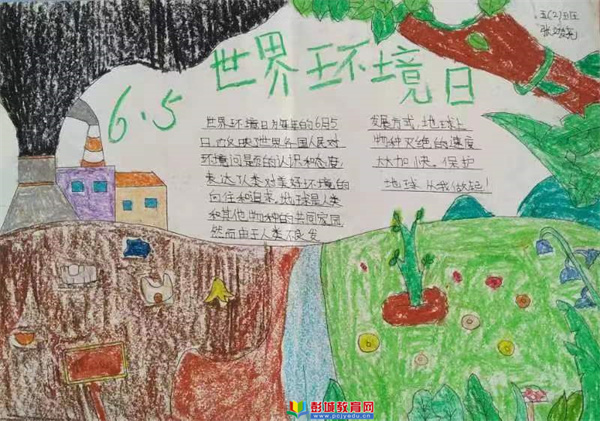 五(2)班
世界环境日
6.5
世界环境日为每年的6月5
日,反映世界各国人民对
环境问题的认识和态度,
表达了人类对美好环境的
向往和追求,地球是人类
和其他物种的共同家园
然而由于人类不良发
发展方式,地球上
物种灭绝的速度
大大加快。保护
地球 从我做起!
彭城教育网